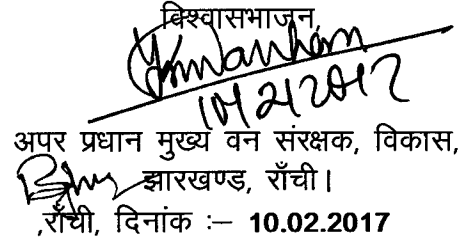 विश्वासभाजन,
अपर प्रधान मुख्य वन संरक्षक, विकास,
झारखण्ड, राँची।
,राँची, दिनांक :– 10.02.2017